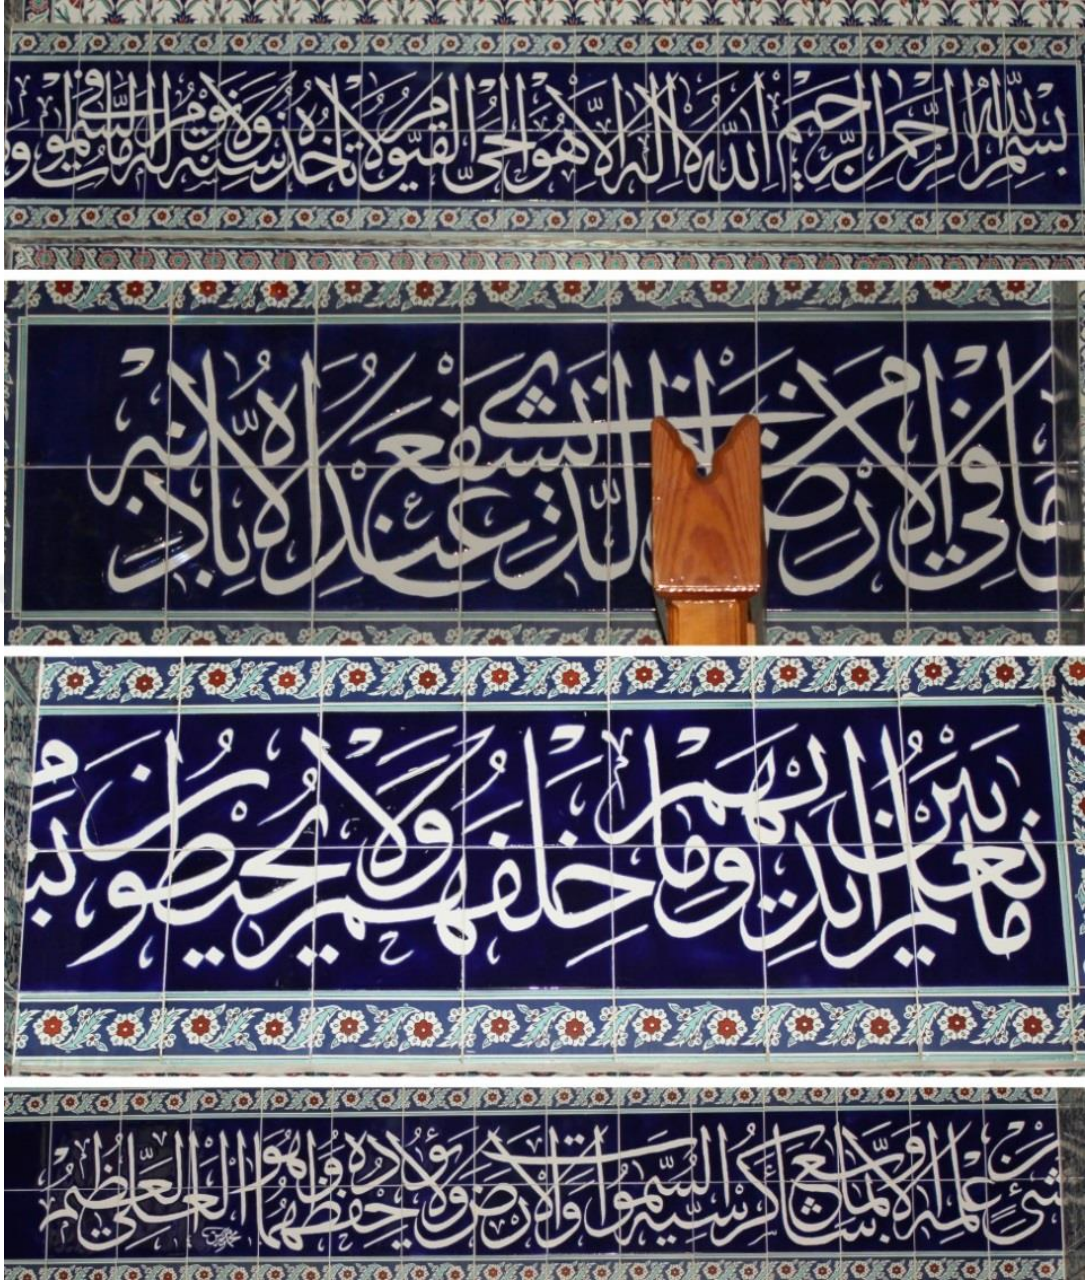 بسم الله الرحمن الرحيم الله لا اله الا هو الحي القيوم لا تأخذه سنة ولا نوم له ما في السموات و
ما في الارض من ذا الذي يشفع عنده الا باذنه
يعلم ما بين ايديهم وما خلفهم ولا يحيطون
بشئ من علمه الا بما شاء وسع كرسيه السموات والارض ولا يؤده حفظهما وهو العلي العظيم